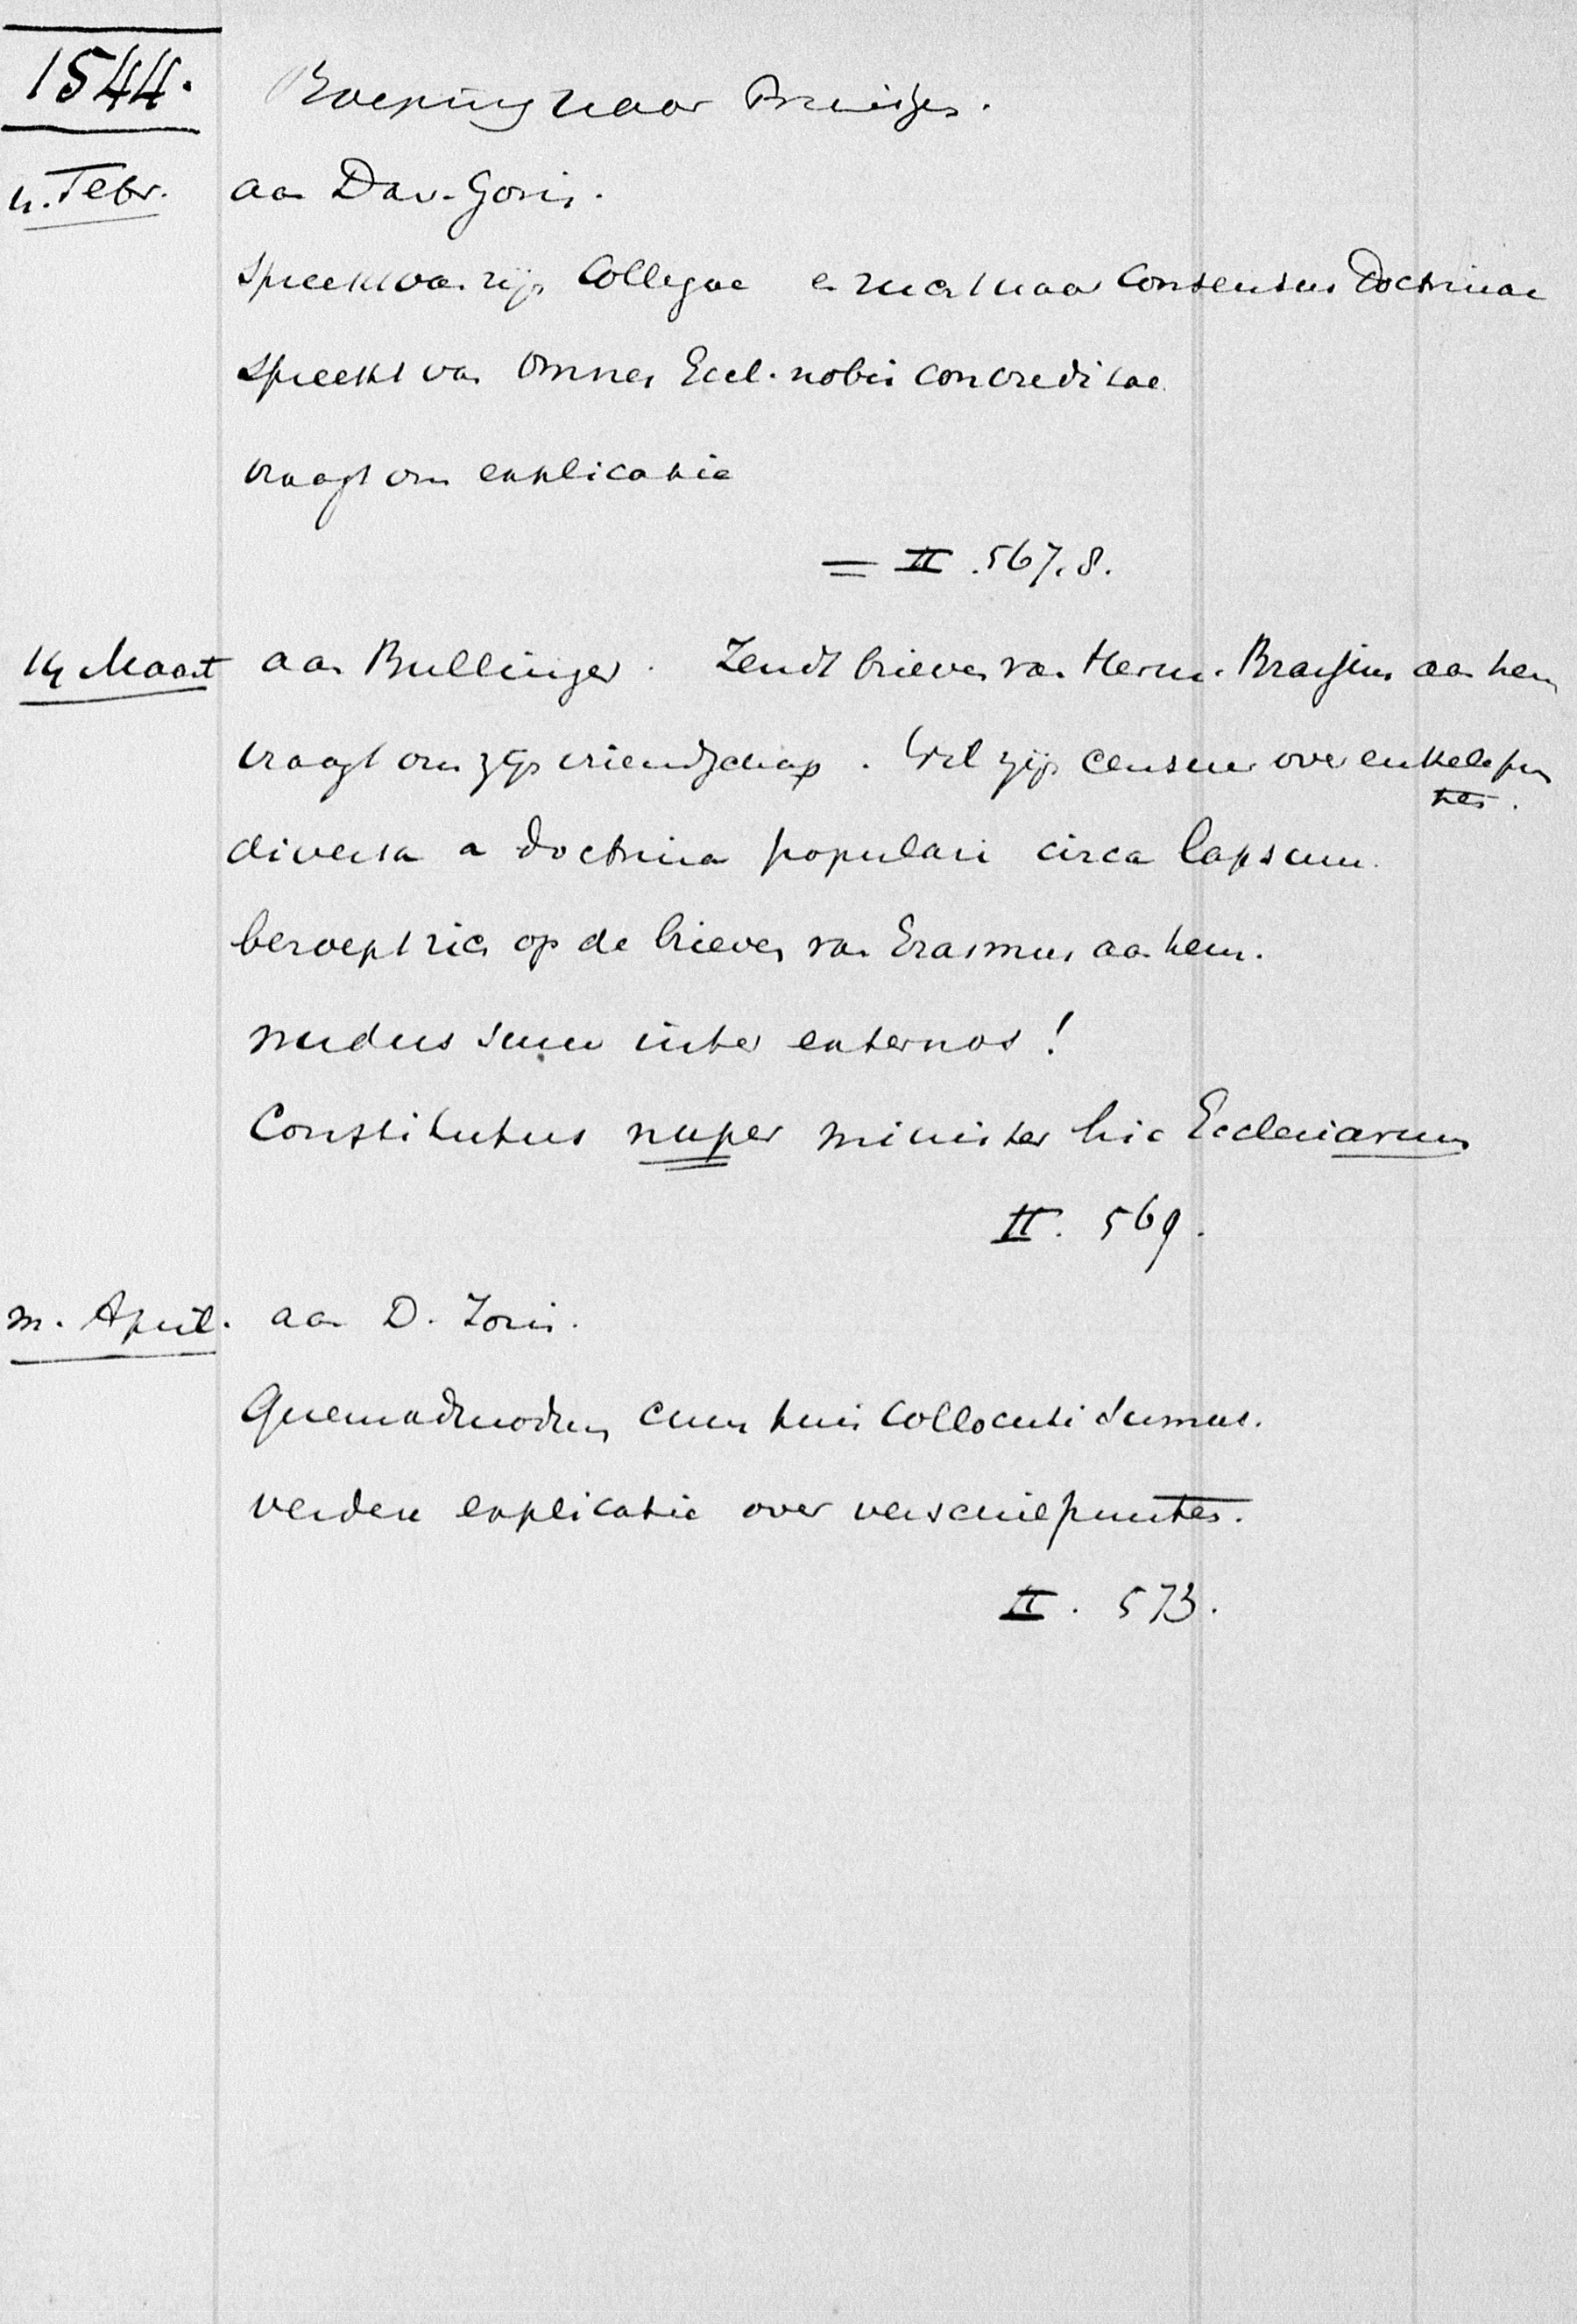 1544. Roeping naar Bruissen.
4. Febr. aan Dav. Joris.
spreekt van zijn Collegae en zucht naar Consensus Doctrinae
spreekt van omnes Eccl. nobis concreditae
vraagt om explicatie
= II. 567.8.
14 Maart aan Bullinger. Zendt brieven van Herm. Brassius aan hem
vraagt om zijn vriendschap. Wil zijn censuur over enkele pun
ten.
diversa a doctrina populari circa lapsum.
beroept zich op de brieven van Erasmus aan hem.
nudus sum inter externos!
Constitutus nuper minister hic Ecclesiarum
II. 569.
m. April. aan D. Joris.
Quemadmodum cum tuis collocuti sumus.
verdere explicatie over verschilpunten.
II. 573.